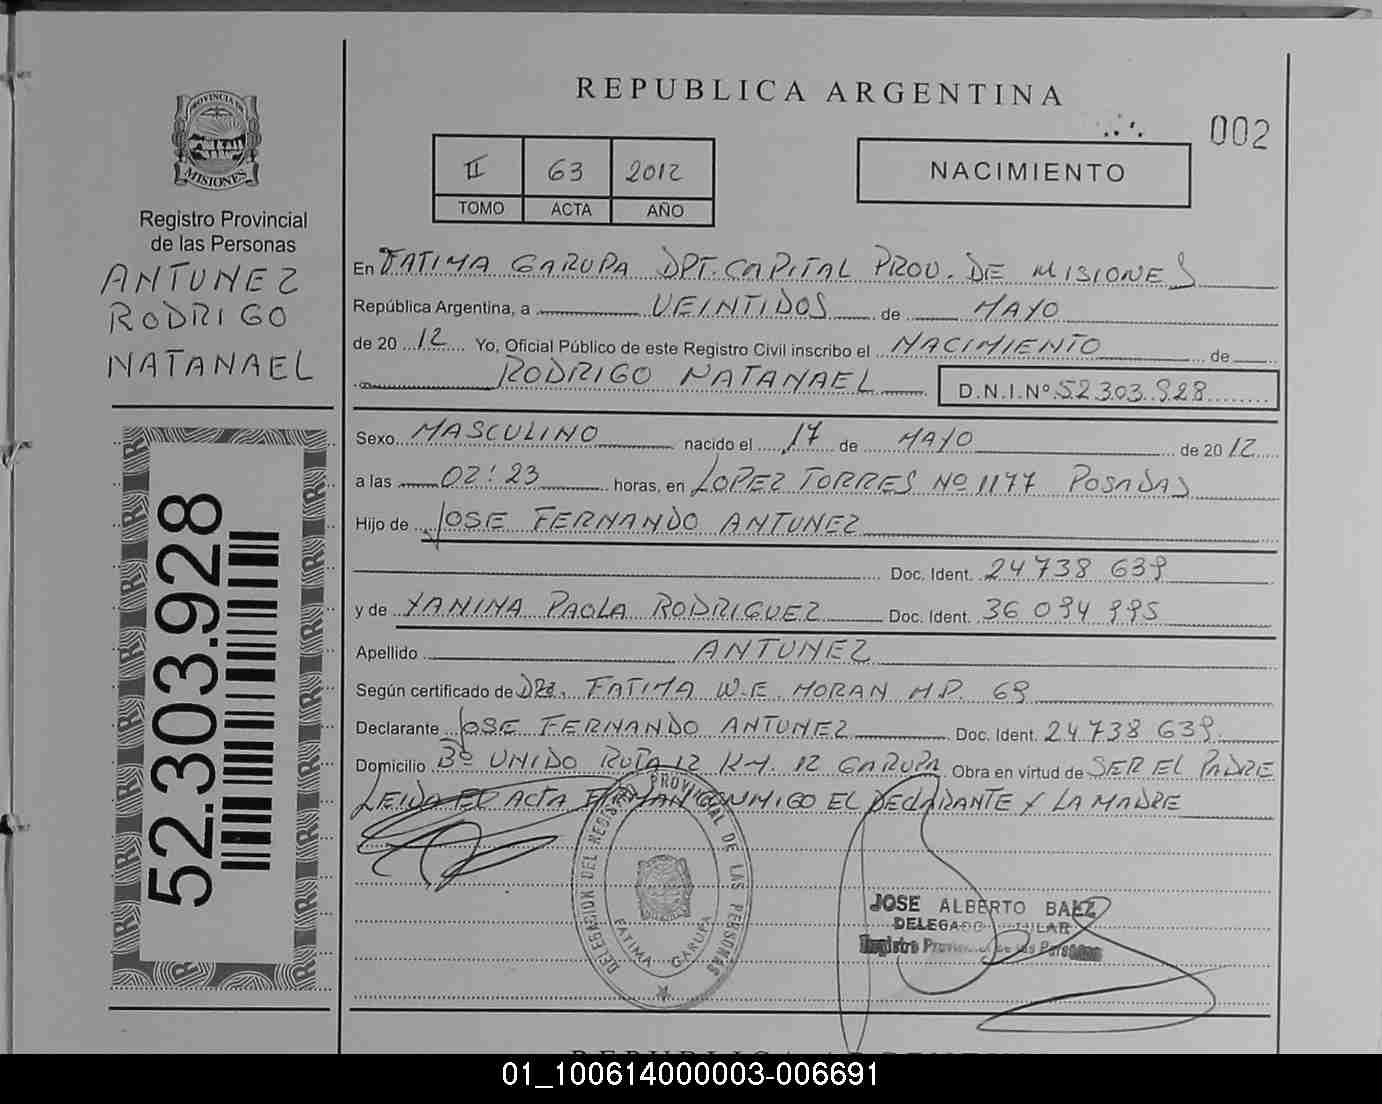 REPUBLICA ARGENTINA
002
PROVINCIA DE
MISIONES
Registro Provincial
de las Personas
ANTUNEZ
RODRIGO
NATANAEL
52.303.928
II 63 2012
TOMO ACTA AÑO
NACIMIENTO
En FATIMA GARUPA DPT. CAPITAL PROV. DE MISIONES
República Argentina, a VEINTIDOS de MAYO
de 20 12 Yo, Oficial Público de este Registro Civil inscribo el NACIMIENTO de
RODRIGO NATANAEL D.N.I.Nº 52.303.928
Sexo MASCULINO nacido el 17 de MAYO de 20 12
a las 02:23 horas, en LOPEZ TORRES Nº 1177 POSADAS
Hijo de JOSE FERNANDO ANTUNEZ
Doc. Ident. 24 738 639
y de YANINA PAOLA RODRIGUEZ Doc. Ident. 36 094 995
Apellido ANTUNEZ
Según certificado de DRA. FATIMA W.E. MORAN M.P. 69
Declarante JOSE FERNANDO ANTUNEZ Doc. Ident. 24 738 639
Domicilio Bº UNIDO RUTA 12 KM. 12 GARUPA Obra en virtud de SER EL PADRE
LEIDA EL ACTA FIRMAN CONMIGO EL DECLARANTE Y LA MADRE
DELEGACION DEL REGISTRO PROVINCIAL DE LAS PERSONAS
FATIMA GARUPA
JOSE ALBERTO BAEZ
DELEGADO TITULAR
Registro Provincial de las Personas
01_100614000003-006691